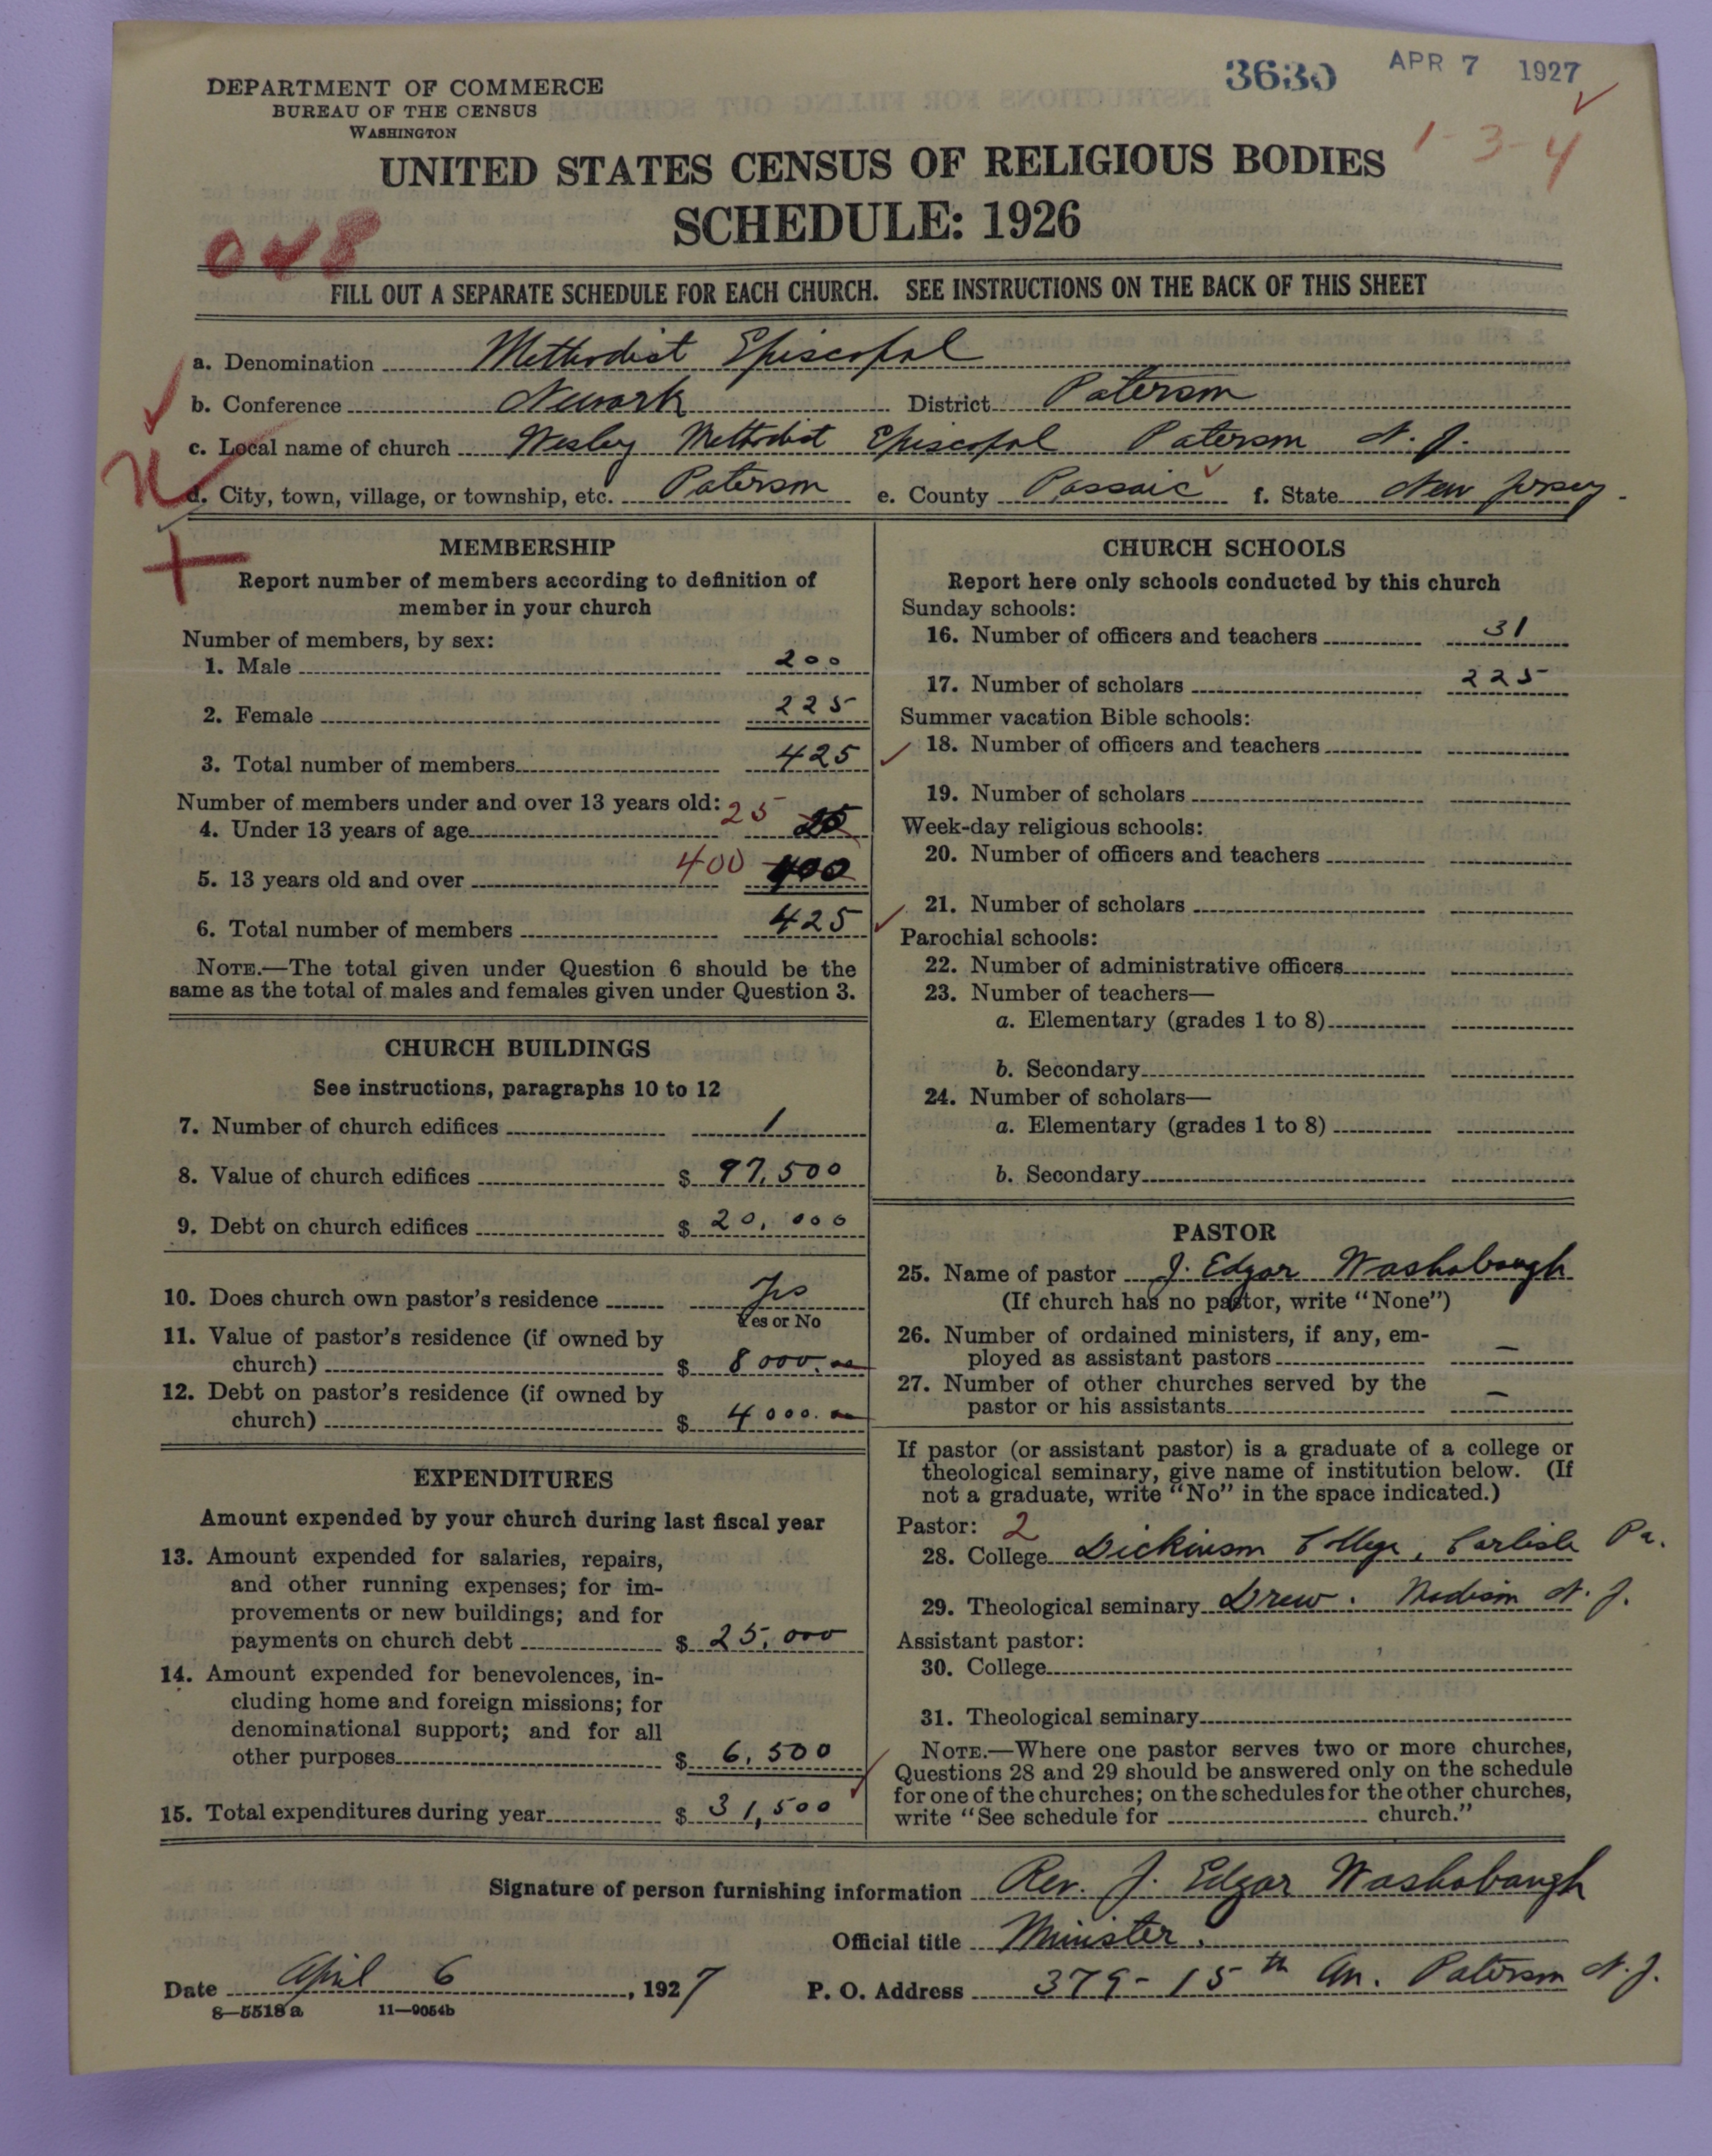 3630 APR 7 1927
DEPARTMENT OF COMMERCE
BUREAU OF THE CENSUS
WASHINGTON
1-3-4
UNITED STATES CENSUS OF RELIGIOUS BODIES
SCHEDULE: 1926
048
FILL OUT A SEPARATE SCHEDULE FOR EACH CHURCH. SEE INSTRUCTIONS ON THE BACK OF THIS SHEET
a. Denomination Methodist Episcopal
b. Conference Newark District Paterson
c. Local name of church Wesley Methodist Episcopal Paterson N. J.
d. City, town, village, or township, etc. Paterson e. County Passaic f. State New Jersey
MEMBERSHIP
Report number of members according to definition of
member in your church
Number of members, by sex:
1. Male 200
2. Female 225
3. Total number of members 425
Number of members under and over 13 years old:
4. Under 13 years of age 25 25
5. 13 years old and over 400 400
6. Total number of members 425
NOTE.—The total given under Question 6 should be the
same as the total of males and females given under Question 3.
CHURCH BUILDINGS
See instructions, paragraphs 10 to 12
7. Number of church edifices 1
8. Value of church edifices $ 97,500
9. Debt on church edifices $ 20,000
10. Does church own pastor's residence Yes
Yes or No
11. Value of pastor's residence (if owned by
church) $ 8000.00
12. Debt on pastor's residence (if owned by
church) $ 4000.00
EXPENDITURES
Amount expended by your church during last fiscal year
13. Amount expended for salaries, repairs,
and other running expenses; for im-
provements or new buildings; and for
payments on church debt $ 25,000
14. Amount expended for benevolences, in-
cluding home and foreign missions; for
denominational support; and for all
other purposes $ 6,500
15. Total expenditures during year $ 31,500
CHURCH SCHOOLS
Report here only schools conducted by this church
Sunday schools:
16. Number of officers and teachers 31
17. Number of scholars 225
Summer vacation Bible schools:
18. Number of officers and teachers
19. Number of scholars
Week-day religious schools:
20. Number of officers and teachers
21. Number of scholars
Parochial schools:
22. Number of administrative officers
23. Number of teachers—
a. Elementary (grades 1 to 8)
b. Secondary
24. Number of scholars—
a. Elementary (grades 1 to 8)
b. Secondary
PASTOR
25. Name of pastor J. Edgar Washabaugh
(If church has no pastor, write "None")
26. Number of ordained ministers, if any, em-
ployed as assistant pastors —
27. Number of other churches served by the
pastor or his assistants —
If pastor (or assistant pastor) is a graduate of a college or
theological seminary, give name of institution below. (If
not a graduate, write "No" in the space indicated.)
Pastor: 2
28. College Dickinson College, Carlisle Pa.
29. Theological seminary Drew. Madison N. J.
Assistant pastor:
30. College
31. Theological seminary
NOTE.—Where one pastor serves two or more churches,
Questions 28 and 29 should be answered only on the schedule
for one of the churches; on the schedules for the other churches,
write "See schedule for church."
Signature of person furnishing information Rev. J. Edgar Washabaugh
Official title Minister.
Date April 6, 1927 P. O. Address 379-15th Av. Paterson N. J.
8—5518a 11—9054b